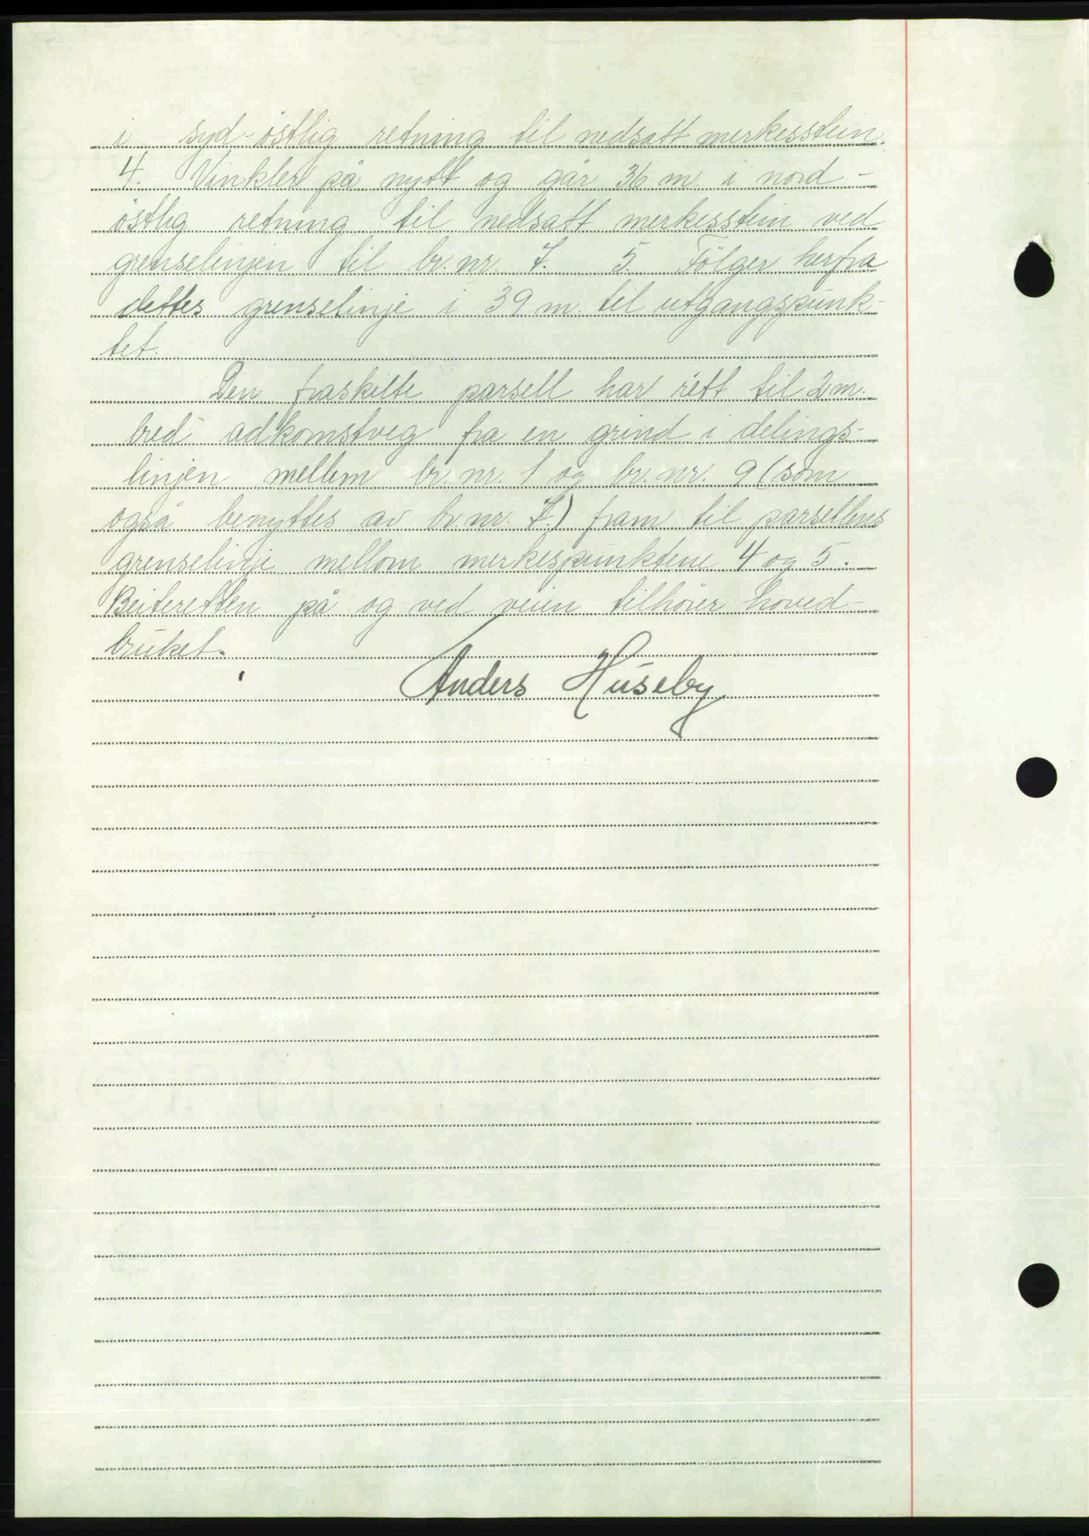 i syd-östlig retning til nedsatt merkesstein.
4. Vinkler på nytt og går 36 m. i nord-
östlig retning til nedsatt merkesstein ved
grenselinjen til br. nr. 7. 5. Fölger herfra
dettes grenselinje i 39 m. til utgangspunk-
tet.
Den fraskilte parsell har rett til 2 m.
bred adkomstveg fra en grind i delings-
linjen mellem br. nr. 1 og br. nr. 9 (som
også benyttes av br. nr. 7.) fram til parsellens
grenselinje mellom merkespunktene 4 og 5.
Beiteretten på og ved veien tilhörer hoved-
bruket.
Anders Huseby